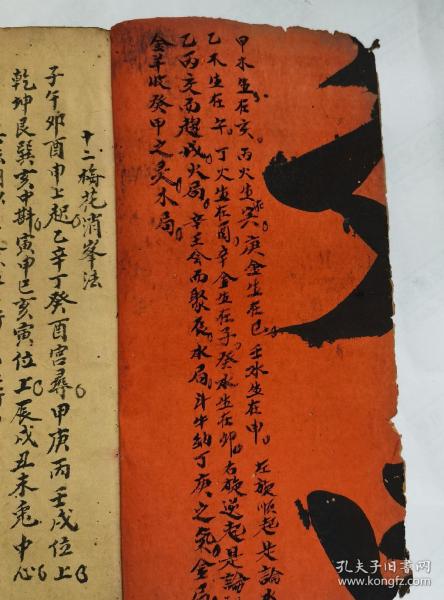 甲木生在亥。丙火生寅。庚金生在巳。壬水生在申。左旋順起是論
乙木生在午。丁火生在酉。辛金生在子。癸水生在卯。右旋逆起是論
乙丙交而趨戌火局。辛壬会而聚辰水局。斗牛納丁庚之氣金局
金羊收癸甲之灵木局。
十二梅花消峯法
子午卯酉申上起乙辛丁癸酉宮尋甲庚丙壬戌位上
乾坤艮巽亥中斟寅申巳亥寅位上辰戌丑未兎中心
孔夫子旧书网
www.kongfz.com